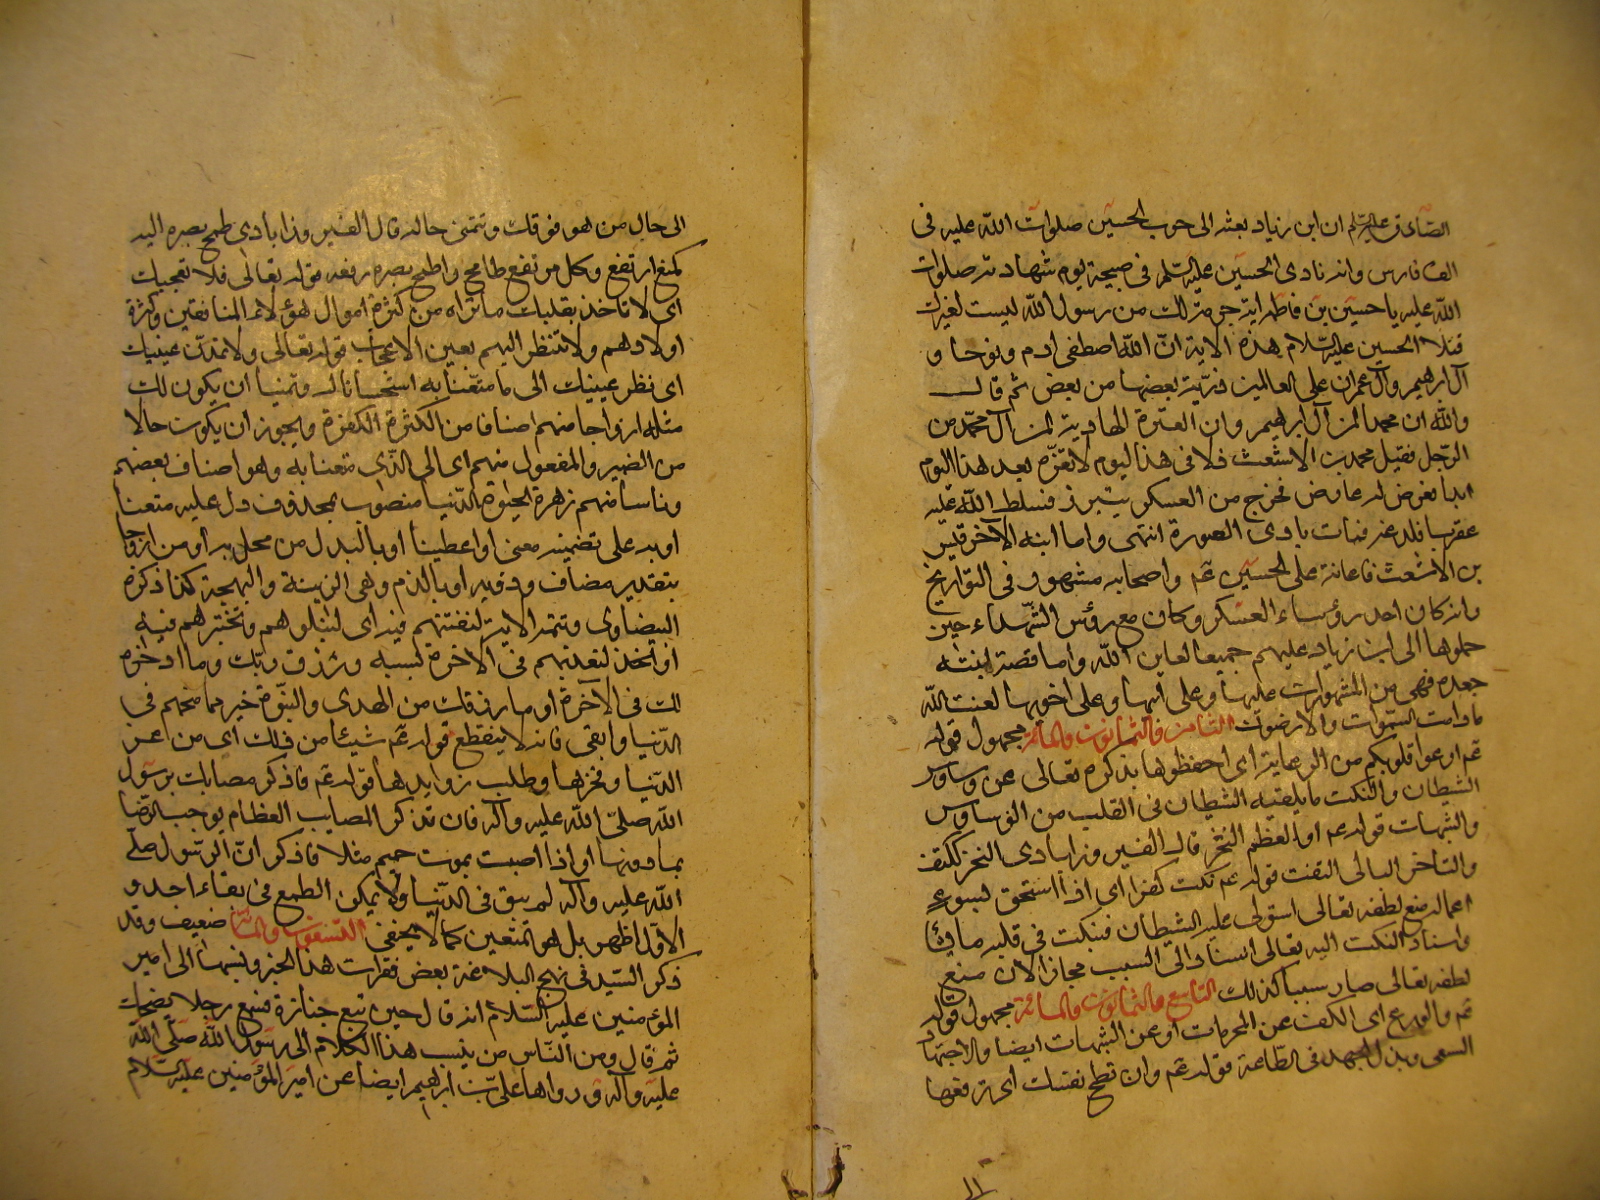 الصادق عليه السلم ان ابن زياد بعثه الى حرب الحسين صلوات الله عليه فى
الف فارس وانه نادى الحسين عليه السلم فى صبيحة يوم شهادته صلوات
الله عليه يا حسين بن فاطمه اية حرمة لك من رسول الله ليست لغيرك
فتلا الحسين عليه السلام هذه الاية ان الله اصطفى ادم ونوحا و
آل ابرهيم وآل عمران على العالمين ذرية بعضها من بعض ثم قال
والله ان محمدا لمن آل ابرهيم وان العترة الهادية لمن آل محمد من
الرجل فقيل محمد بن الاشعث فى هذا اليوم لا تعزه بعد هذا اليوم
ابدا فعرض له عارض فخرج من العسكر يتبرز فسلط الله عليه
عقربا فلدغه فمات بادى العورة انتهى واما ابنه الآخر قيس
بن الاشعث فاعانته على الحسين عم واصحابه مشهور فى التواريخ
وانه كان احد رؤساء العسكر وكان مع رؤس الشهداء حين
حملوها الى ابن زياد عليهم جميعا لعاين الله واما قصة ابنته
جعده فهى من المشهورات عليها وعلى ابيها وعلى اخويها لعنت الله
ما دامت السموات والارضون الثامن والثمانون والمائة مجهول قوله
عم ارعوا قلوبكم من الرعاية اى احفظوها بذكره تعالى عن وساوس
الشيطان والنكت ما يلقيه الشيطان فى القلب من الوساوس
والشبهات قوله عم او العظم النخر قال الفير وزابادى النخر ككتف
والناخر البالى المتفتت قوله عم نكت كفرا اى اذا استحق لسوء
اعماله منع لطفه تعالى استولى عليه الشيطان فينكت فى قلبه ما يشا
واسناد النكت اليه تعالى اسناد الى السبب مجازا لان منع
لطفه تعالى صار سببا لذلك التاسع والثمانون والمائة مجهول قوله
عم والورع اى الكف عن المحرمات او عن الشبهات ايضا والاجتهاد
السعى وبذل الجهد فى الطاعة قوله عم وان تطمح نفسك اى ترفعها
الى حال من هو فوقك وتتمنى حاله قال الفير وزابادى طمح بصره اليه
كمنع ارتفع وكل مرتفع طامح واطمح بصره رفعه قوله تعالى فلا تعجبك
اى لا تاخذ بقلبك ما تراه من كثرة اموال هؤلاء المنافقين وكثرة
اولادهم ولا تنظر اليهم بعين الاعجاب قوله تعالى ولا تمدن عينيك
اى نظر عينيك الى ما متعنا به استحسانا له وتمنيا ان يكون لك
مثله ازواجا منهم اصنافا من الكفرة ويجوز ان يكون حالا
من الضمير والمفعول منهم اى الى الذى متعنا به وهو اصناف بعضهم
وناسا منهم زهرة الحيوة الدنيا منصوب بمحذوف دل عليه متعنا
او به على تضمينه معنى اعطينا او بالبدل من محل به او من ازواجا
بتقدير مضاف ودونه او بالذم وهى الزينة والبهجة كذا ذكره
البيضاوى وتتمه الاية لنفتنهم فيه اى لنبلوهم ونختبرهم فيه
او لنعذبهم فى الاخرة بسببه ورزق ربك وما ادخره
لك فى الآخرة او ما رزقك من الهدى والنبوة خير مما منحهم فى
الدنيا وابقى فانه لا ينقطع قوله عم شيئا من ذلك اى من عز
الدنيا وفخرها وطلب زوايدها قوله عم فاذكر مصابك برسول
الله صلى الله عليه وآله فان تذكر المصايب العظام يوجب الرضا
بما دونها او اذا اصبت بموت حميم مثلا فاذكر ان الرسول صلى
الله عليه وآله لم يبق فى الدنيا ولا يمكن الطمع فى بقاء احد و
الاول اظهر بل هو متعين كما لا يخفى التسعون والمائة ضعيف وقد
ذكر السيد فى نهج البلاغة بعض فقرات هذا الخبر ونسبها الى امير
المؤمنين عليه السلام انه قال حين تبع جنازة فسمع رجلا يضحك
ثم قال ومن الناس من ينسب هذا الكلام الى رسول الله صلى الله
عليه وآله وقد رواها على بن ابرهيم ايضا عن امير المؤمنين عليه السلام